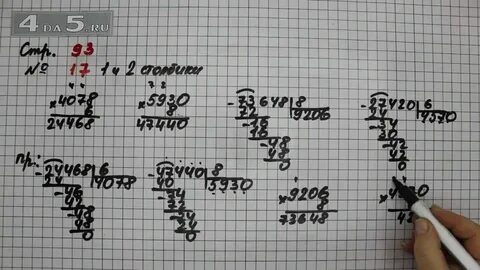 4DA5.RU
Стр. 93
№ 17 1 и 2 столбики
×4078
6
24468
×5930
8
47440
-73648|8
72 |9206
-16
16
-48
48
0
-27420|6
24 |4570
-34
30
-42
42
0
пр:
-24468|6
24 |4078
-46
42
-48
48
0
-47440|8
40 |5930
-74
72
-24
24
0
×9206
8
73648